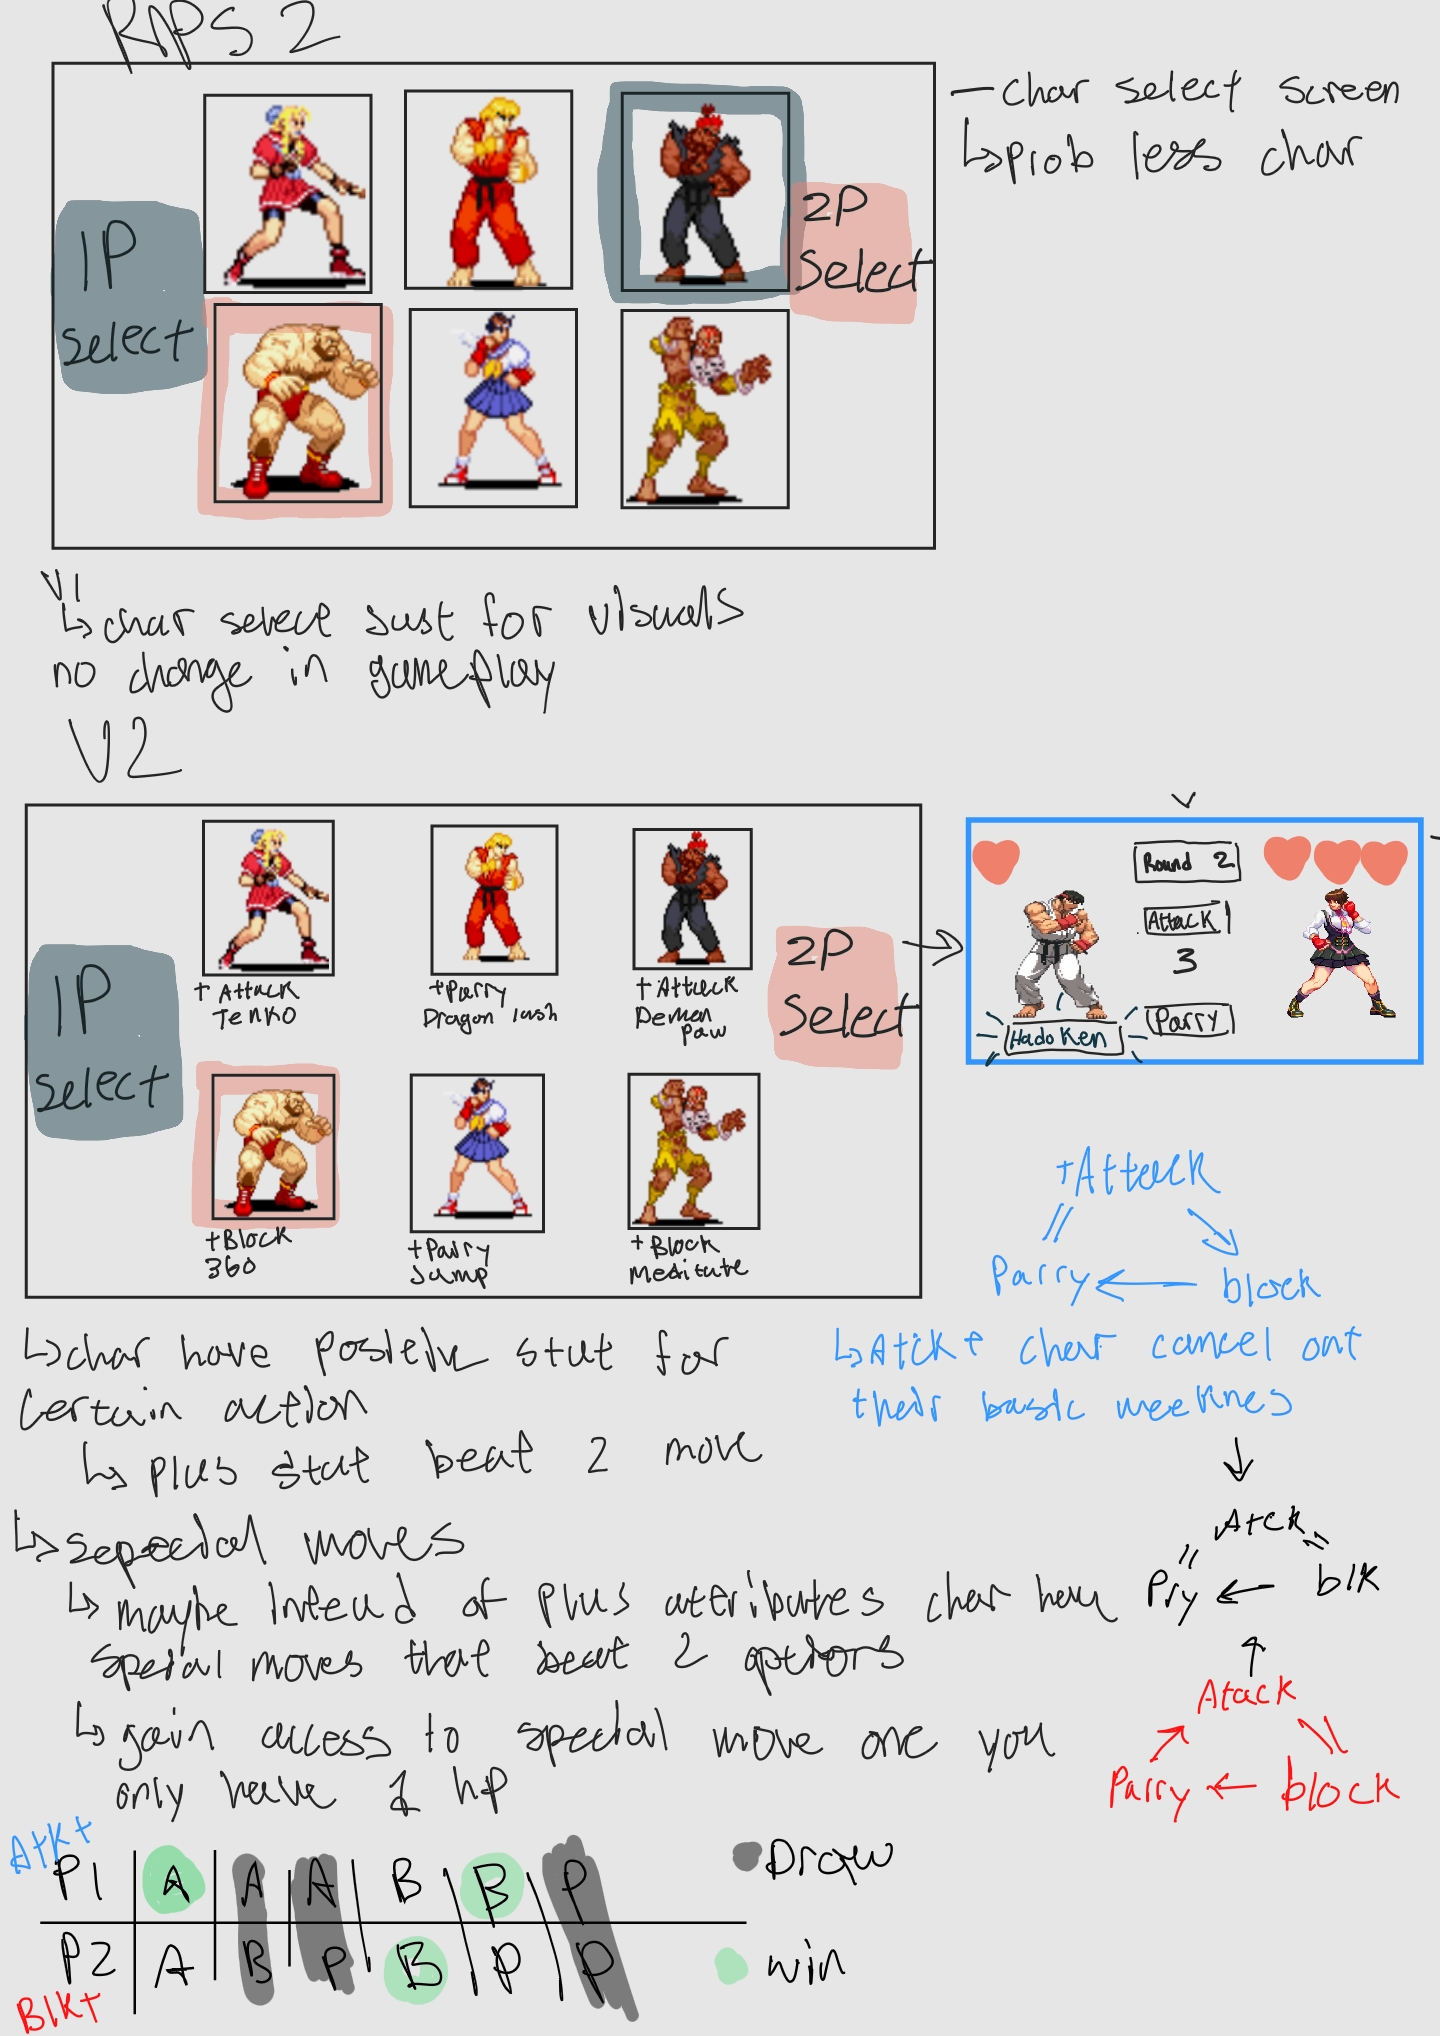 RPS 2
- char select screen
↳ prob less char
1P
select
2P
Select
V1
↳ char select just for visuals
no change in gameplay
V2
1P
select
2P
Select
+ Attack
Tenko
+Parry
Dragon lash
+ Attack
Demon
paw
+Block
360
+Parry
Jump
+ Block
Meditate
Round 2
Attack!
3
Hadoken
Parry
+Attack
Parry ← block
↳ Atck+ char cancel out
their basic weeknes
↳ char have positive stat for
certain action
↳ plus stat beat 2 move
↳ sepecial moves
↳ maybe intead of plus atributes char have
special moves that beat 2 options
↳ gain access to special move one you
only have 1 hp
Atck
Pry ← blk
Atack
Parry ← block
Atk+
P1 A A A B B P
P2 A B P B P P
Blk+
Draw
win